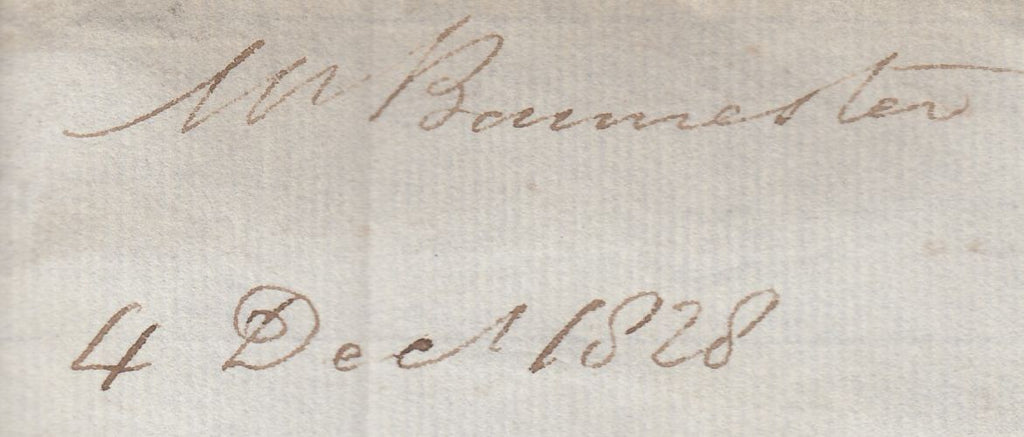 Mr Baumester
4 Decr 1828